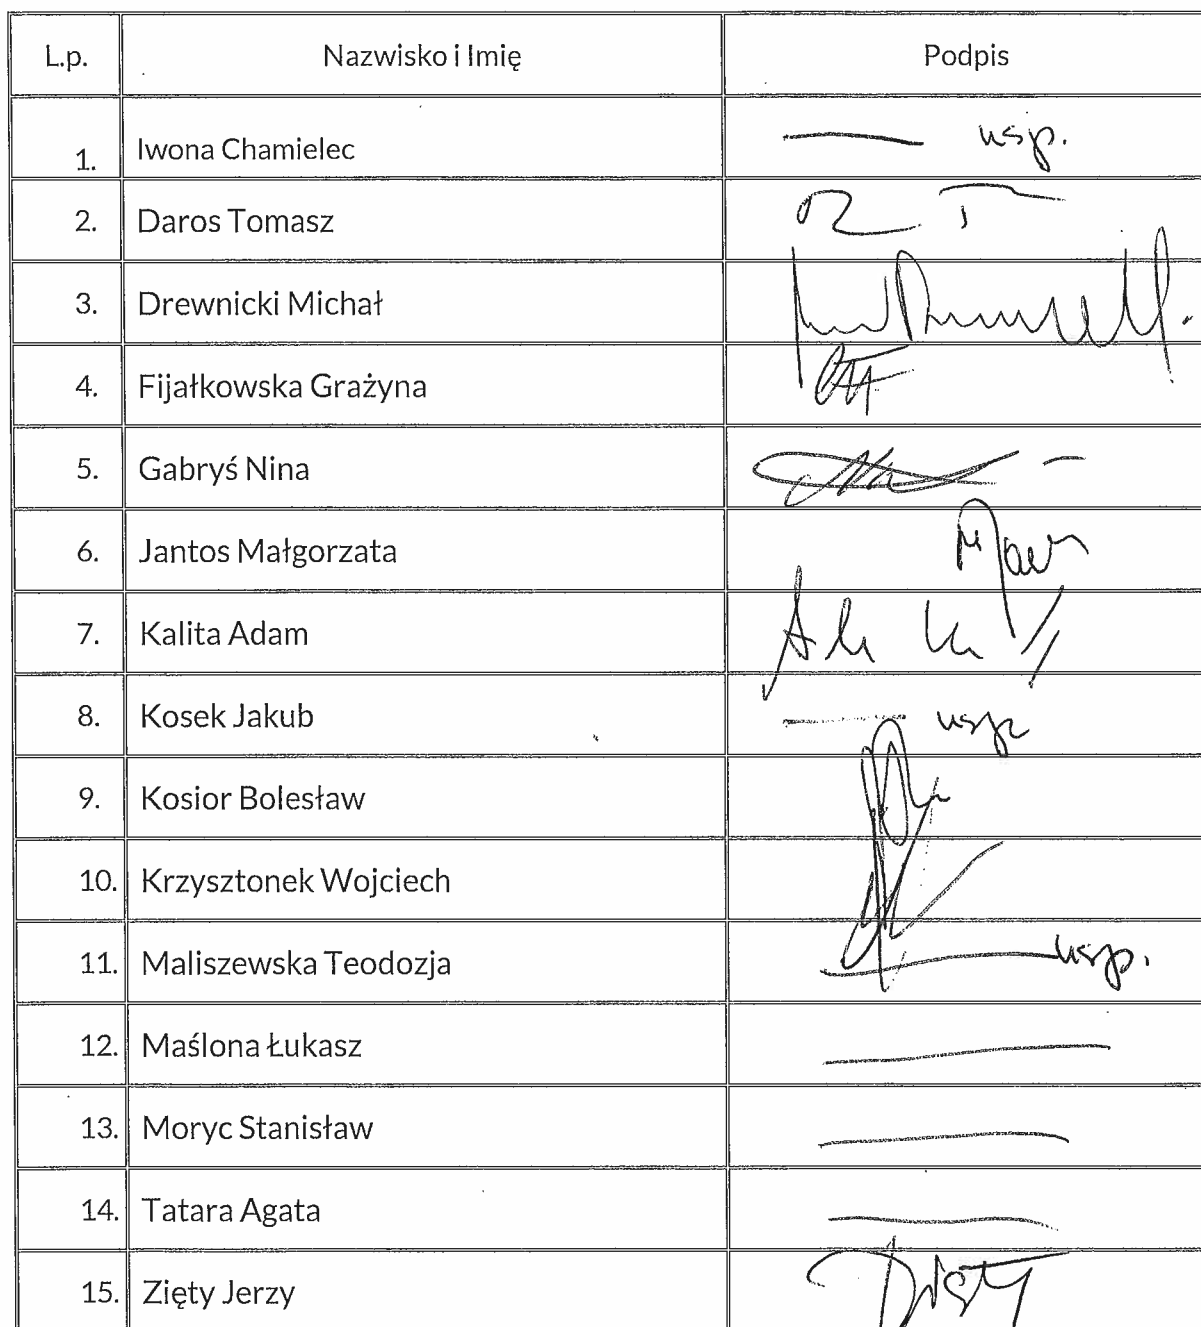 L.p. Nazwisko i Imię Podpis
1. Iwona Chamielec usp.
2. Daros Tomasz
3. Drewnicki Michał
4. Fijałkowska Grażyna
5. Gabryś Nina
6. Jantos Małgorzata
7. Kalita Adam
8. Kosek Jakub usp
9. Kosior Bolesław
10. Krzysztonek Wojciech
11. Maliszewska Teodozja usp.
12. Maślona Łukasz
13. Moryc Stanisław
14. Tatara Agata
15. Zięty Jerzy